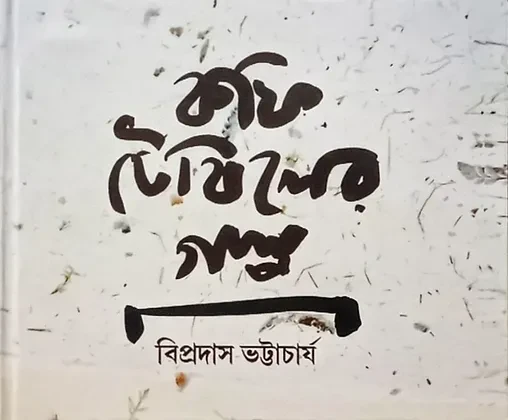 কফি
টেবিলের
গল্প
বিপ্রদাস ভট্টাচার্য